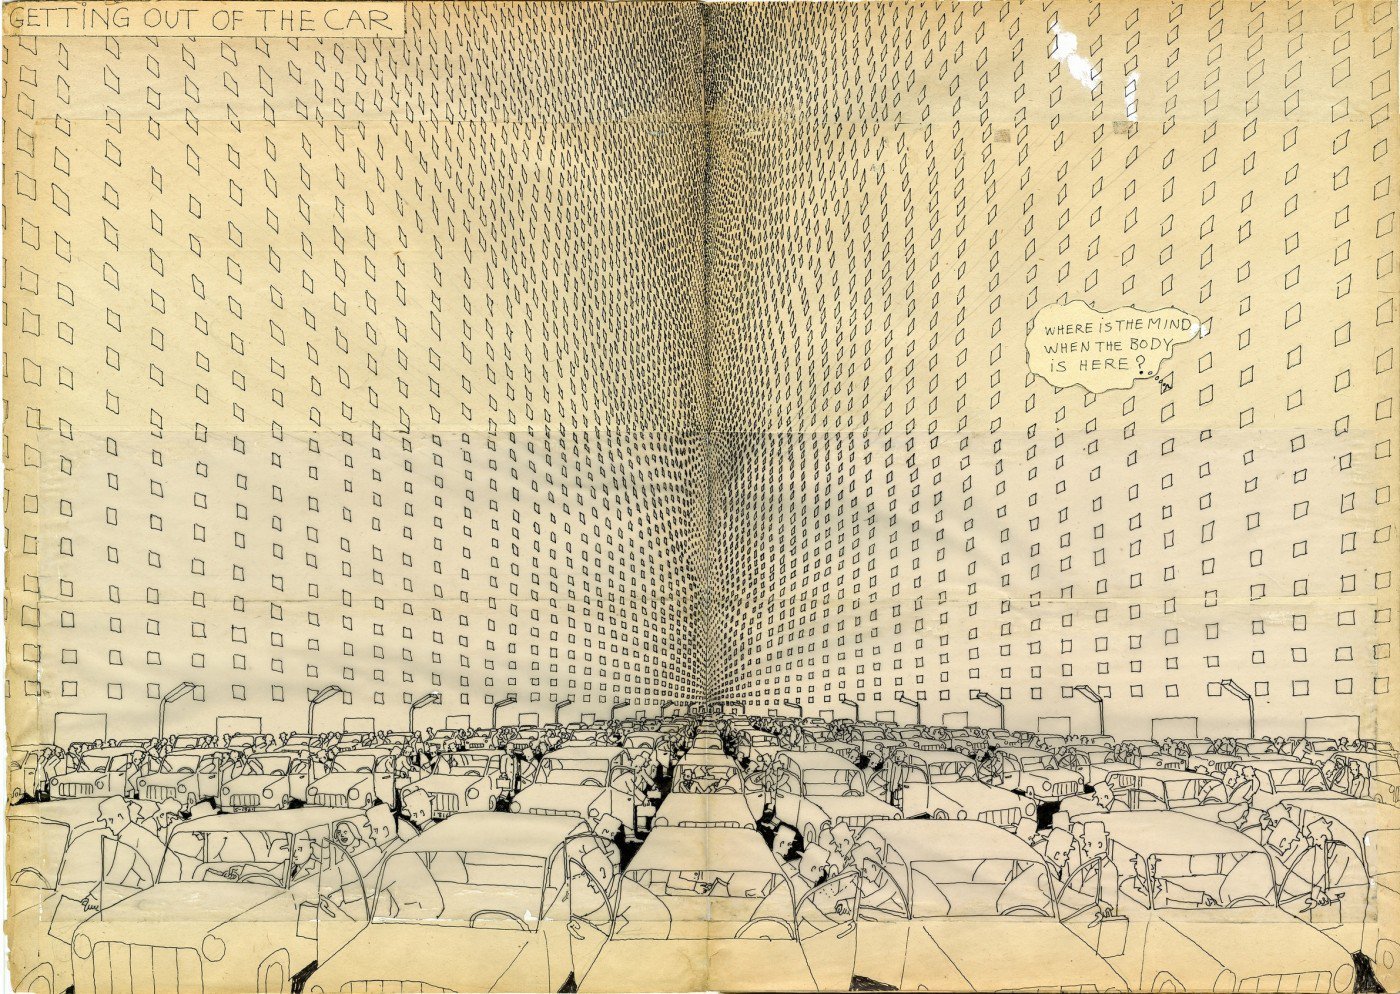 GETTING OUT OF THE CAR
WHERE IS THE MIND
WHEN THE BODY
IS HERE?